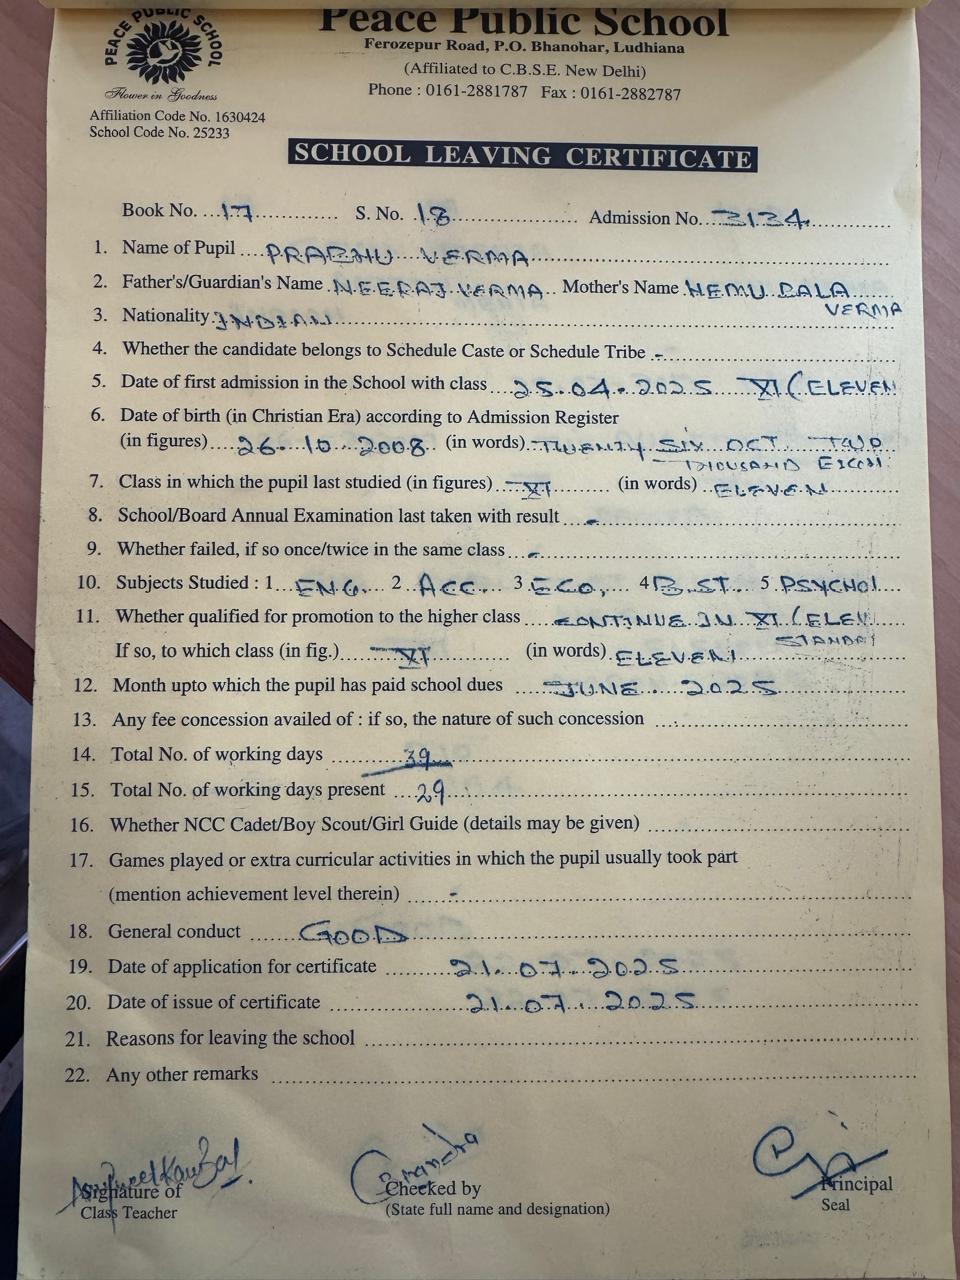 PEACE PUBLIC SCHOOL
Flower in Goodness
Affiliation Code No. 1630424
School Code No. 25233
Peace Public School
Ferozepur Road, P.O. Bhanohar, Ludhiana
(Affiliated to C.B.S.E. New Delhi)
Phone : 0161-2881787 Fax : 0161-2882787
SCHOOL LEAVING CERTIFICATE
Book No. 17 S. No. 18 Admission No. 3134
1. Name of Pupil PRABHU VERMA
2. Father's/Guardian's Name NEERAJ VERMA Mother's Name HEMU BALA
VERMA
3. Nationality INDIAN
4. Whether the candidate belongs to Schedule Caste or Schedule Tribe -
5. Date of first admission in the School with class 25.04.2025 XI (ELEVEN
6. Date of birth (in Christian Era) according to Admission Register
(in figures) 26.10.2008 (in words) TWENTY SIX OCT. TWO
THOUSAND EIGHT
7. Class in which the pupil last studied (in figures) XI (in words) ELEVEN
8. School/Board Annual Examination last taken with result -
9. Whether failed, if so once/twice in the same class -
10. Subjects Studied : 1 ENG. 2 ACC. 3 ECO, 4 B.ST. 5 PSYCHOL
11. Whether qualified for promotion to the higher class CONTINUE IN XI (ELEV
If so, to which class (in fig.) XI (in words) ELEVEN
12. Month upto which the pupil has paid school dues JUNE 2025
13. Any fee concession availed of : if so, the nature of such concession
14. Total No. of working days 39
15. Total No. of working days present 29
16. Whether NCC Cadet/Boy Scout/Girl Guide (details may be given)
17. Games played or extra curricular activities in which the pupil usually took part
(mention achievement level therein) -
18. General conduct GOOD
19. Date of application for certificate 21.07.2025
20. Date of issue of certificate 21.07.2025
21. Reasons for leaving the school
22. Any other remarks
Signature of
Class Teacher
Checked by
(State full name and designation)
Principal
Seal